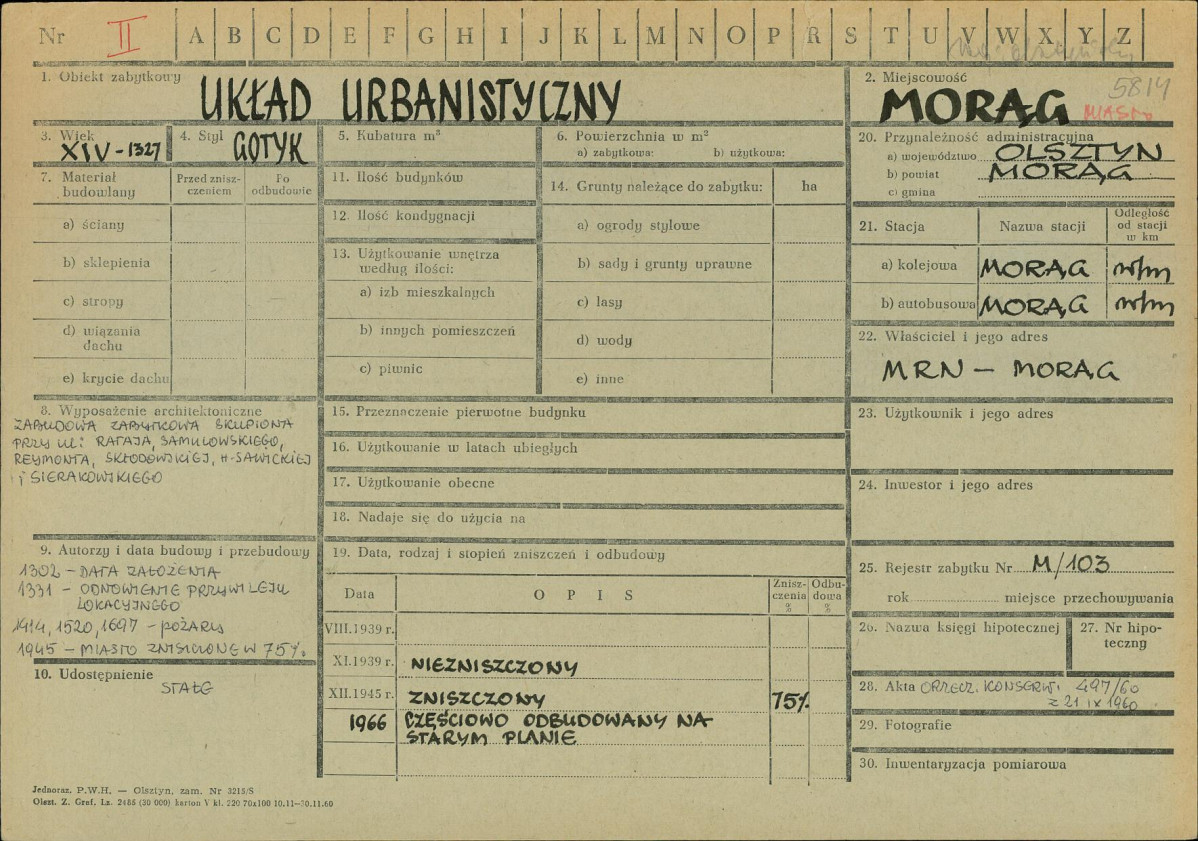 Nr II A B C D E F G H I J K L M N O P R S T U V W X Y Z
1. Obiekt zabytkowy
UKŁAD URBANISTYCZNY
2. Miejscowość
5814
MORĄG MIASTO
3. Wiek
XIV - 1327
4. Styl
GOTYK
5. Kubatura m³
6. Powierzchnia w m²
a) zabytkowa: b) użytkowa:
20. Przynależność administracyjna
a) województwo OLSZTYN
b) powiat MORĄG
c) gmina
7. Materiał
budowlany
Przed znisz-
czeniem
Po
odbudowie
a) ściany
b) sklepienia
c) stropy
d) wiązania
dachu
e) krycie dachu
11. Ilość budynków
12. Ilość kondygnacji
13. Użytkowanie wnętrza
według ilości:
a) izb mieszkalnych
b) innych pomieszczeń
c) piwnic
14. Grunty należące do zabytku: ha
a) ogrody stylowe
b) sady i grunty uprawne
c) lasy
d) wody
e) inne
21. Stacja Nazwa stacji
Odległość
od stacji
w km
a) kolejowa MORĄG
b) autobusowa MORĄG
22. Właściciel i jego adres
MRN - MORĄG
8. Wyposażenie architektoniczne
ZABUDOWA ZABYTKOWA SKUPIONA
PRZY UL: RATAJA, SAMULOWSKIEGO,
REYMONTA, SKŁODOWSKIEJ, H. SAWICKIEJ
i SIERAKOWSKIEGO
15. Przeznaczenie pierwotne budynku
16. Użytkowanie w latach ubiegłych
17. Użytkowanie obecne
18. Nadaje się do użycia na
23. Użytkownik i jego adres
24. Inwestor i jego adres
9. Autorzy i data budowy i przebudowy
1302 - DATA ZAŁOŻENIA
1331 - ODNOWIENIE PRZYWILEJU
LOKACYJNEGO
1414, 1520, 1697 - POŻARY
1945 - MIASTO ZNISZCZONE W 75%.
10. Udostępnienie
STAŁE
19. Data, rodzaj i stopień zniszczeń i odbudowy
Data O P I S
Znisz-
czenia
%
Odbu-
dowa
%
VIII.1939 r.
XI.1939 r. NIEZNISZCZONY
XII.1945 r. ZNISZCZONY 75%
1966 CZĘŚCIOWO ODBUDOWANY NA
STARYM PLANIE
25. Rejestr zabytku Nr M/103
rok miejsce przechowywania
26. Nazwa księgi hipotecznej
27. Nr hipo-
teczny
28. Akta ORZECZ. KONSERW. 497/60
z 21 IX 1960
29. Fotografie
30. Inwentaryzacja pomiarowa
Jednoraz. P.W.H. — Olsztyn, zam. Nr 3215/S
Olszt. Z. Graf. Lz. 2486 (30 000) karton V kl. 220 70x100 10.11-30.11.60